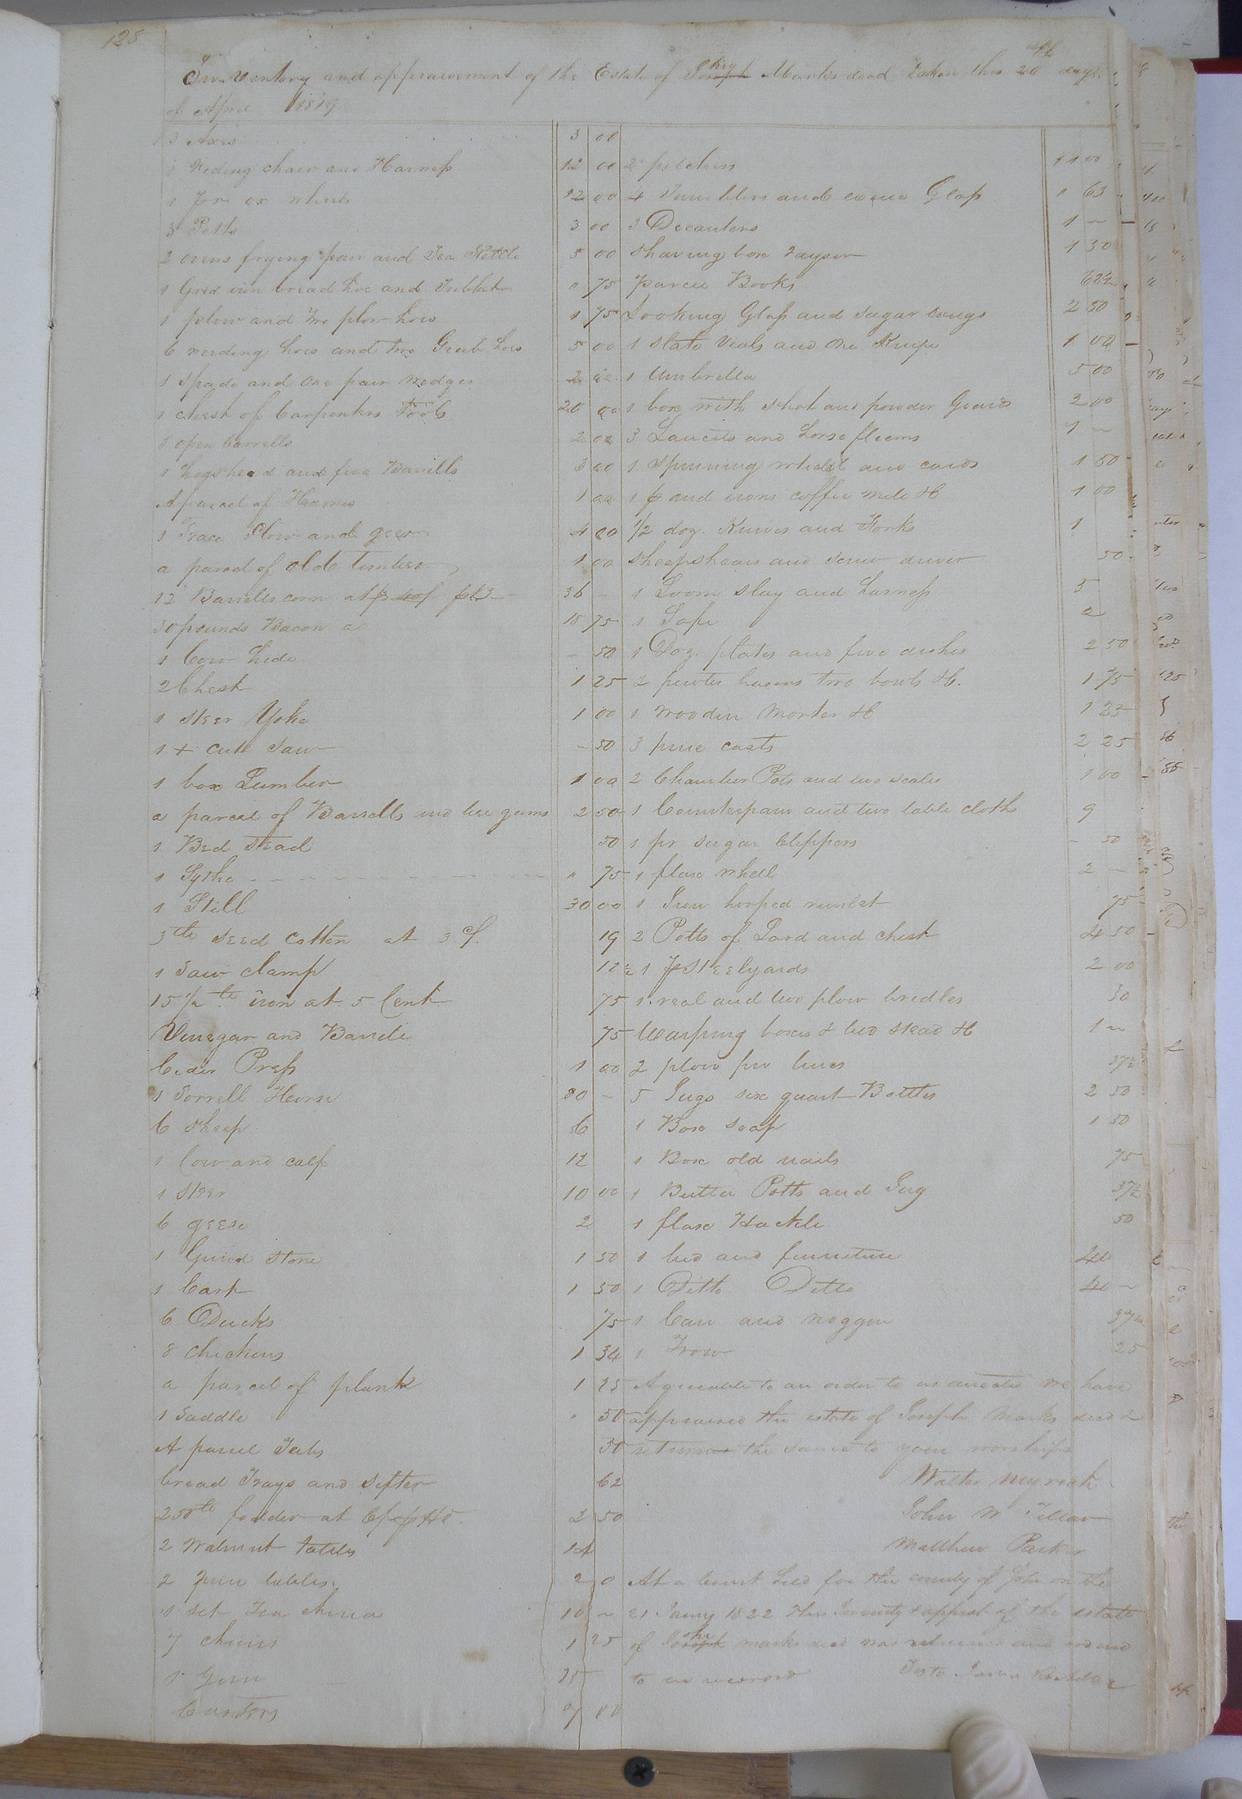 125
Inventory and appraisement of the Estate of Joseph Marks decd Taken this 26th day
of April 1819
3 Axes 3 00
1 Reding chair and Harness 12 00
1 for ox wheels 12 00
3 Potts 3 00
2 ovens frying pan and Tea Kettle 5 00
1 Grid iron bread hoe and 75
1 plow and two plow hoes 1 75
6 weeding hoes and two Grub hoes 5 00
1 spade and one pair wedges 2
1 chest of Carpenters Tools 20 00
open barrells 2 00
1 Hogshead and five Barrells 3 00
A parcel of Heames 1 00
1 Trace Plow and gear 4 00
a parcel of olde timber 1 00
12 Barrells corn at $3 36 –
30 pounds Bacon a 18 75
1 Cow hide – 50
2 Chest 1 25
1 steer Yoke 1 00
1 + cutt saw – 50
1 box Lumber 1 00
a parcel of Barrells and bee gums 2 50
1 Bed stead 50
1 Sythe 75
1 Still 30 00
seed cotton at 3 cf. 19
1 Saw clamp 12½
15½ lb iron at 5 Cent 75
Vinegar and Barrele 75
Cider Press 1 00
1 Sorrell Horse 80 –
6 sheep 6
1 Cow and calf 12
1 steer 10 00
6 geese 2
1 Grind stone 1 50
1 Cart 1 50
6 Ducks 75
8 chickens 1 34
a parcel of plank 1 25
1 Saddle 50
A parcel Tubs 50
bread Trays and sifter 62
250 lb fodder at 2 50
2 Walnut tables 14
2 pine tables 2 0
1 set Tea china 10 –
7 chairs 1 25
1 Gun 15
Castors 7 00
2 pitchers 1 00
4 Tumblers and wine Glass 1 63
3 Decanters 1 –
shaving box Raysor 1 50
Parcel Books 62½
Looking Glass and sugar 2 50
1 slate Vials and one Knife 1 04
1 Umbrella 5 00
1 box with shot and powder Gourd 2 00
3 Lancets and horse fleems 1 –
1 spinning wheel and cards 1 50
1 p and irons coffee mill &c 1 00
1/2 doz. Knives and Forks 1
sheepshears and screw driver 50
1 Loom slay and harness 5
1 Safe
1 Doz. plates and five dishes 2 50
2 pewter basons two bowls &c. 1 75
1 wooden Morter &c 1 25
3 pine casts 2 25
2 Chamber Pots and two scales 1 00
1 Counterpain and two table cloths 9
1 pr sugar Clippers – 50
1 flax wheel 2 –
1 Iron hooped runlet 75
2 Potts of Lard and chest 4 50
1 p steelyards 2 00
1 real and two plow bridles 50
Warping boxes & two stead &c 1 –
2 plow pr lines 37½
5 Jugs six quart Bottles 2 50
1 Box soap 1 50
1 Box old nails 75
1 Butter Potts and Jug 37½
1 flax Hackle 50
1 bed and furniture 40
1 Ditto Ditto 40 –
1 Can and noggin 37½
1 Frow 25
Agreeable to an order to us directed we have
appraised the estate of Joseph Marks decd &
returned the same to your worships
Walter Meyrick
John W Tillar
Matthew Parker
At a Court held for the county of John on the
21 Janry 1822 This Inventy & appmt of the estate
of Joseph marks decd was returned and ordered
to be recorded Teste